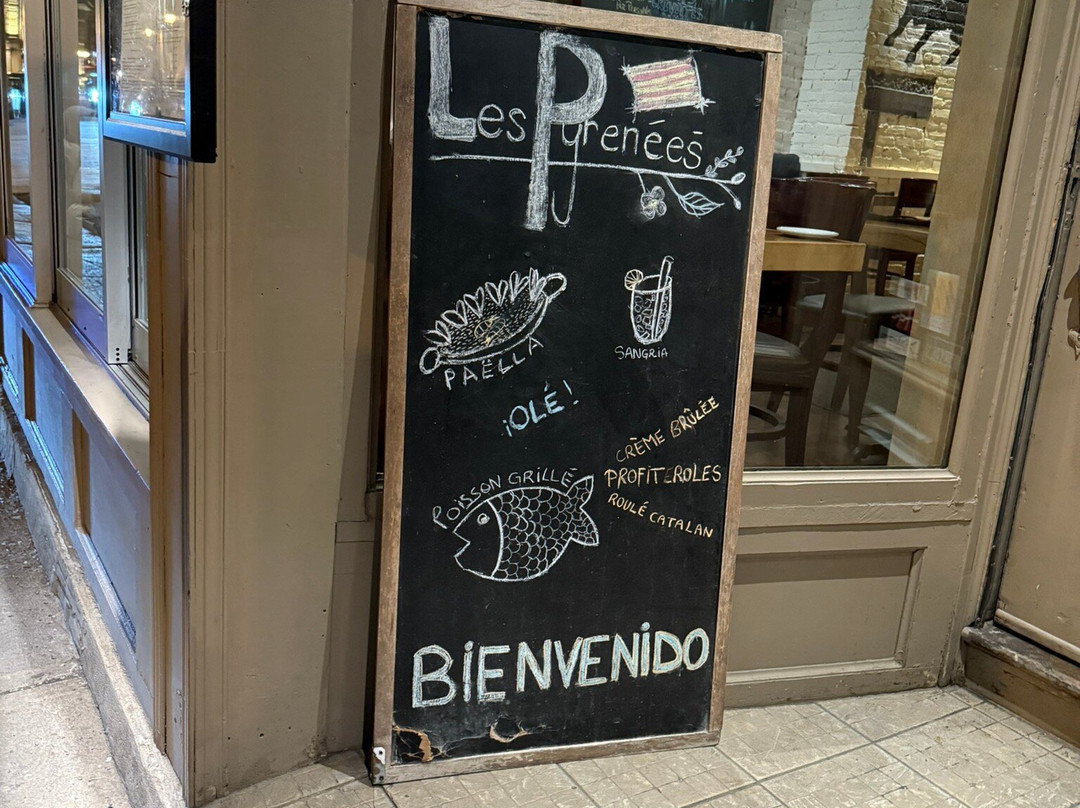 Les Pyrenéés
PAËLLA
SANGRIA
¡OLÉ!
CRÈME BRÛLÉE
PROFITEROLES
ROULÉ CATALAN
POISSON GRILLÉ
BIENVENIDO